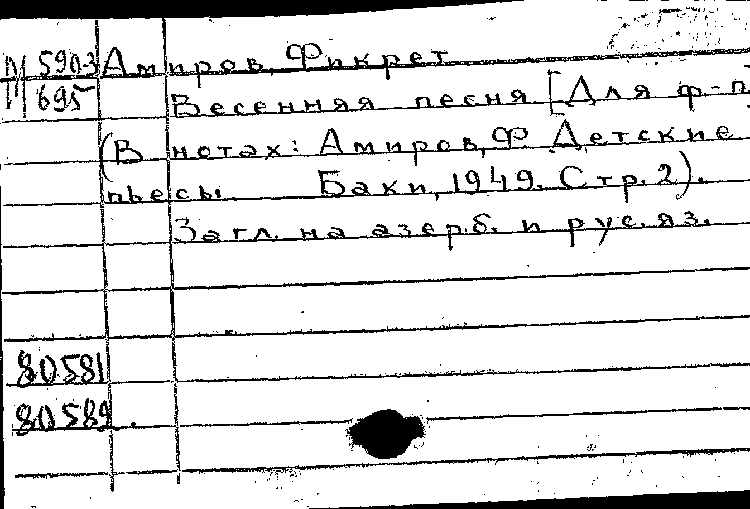 М 5903 Амиров, Фикрет
695 Весенняя песня [Для ф-п
(В нотах: Амиров, Ф Детские
пьесы Баку, 1949. Стр. 2).
Загл. на азерб. и рус. яз.
80581
80589.